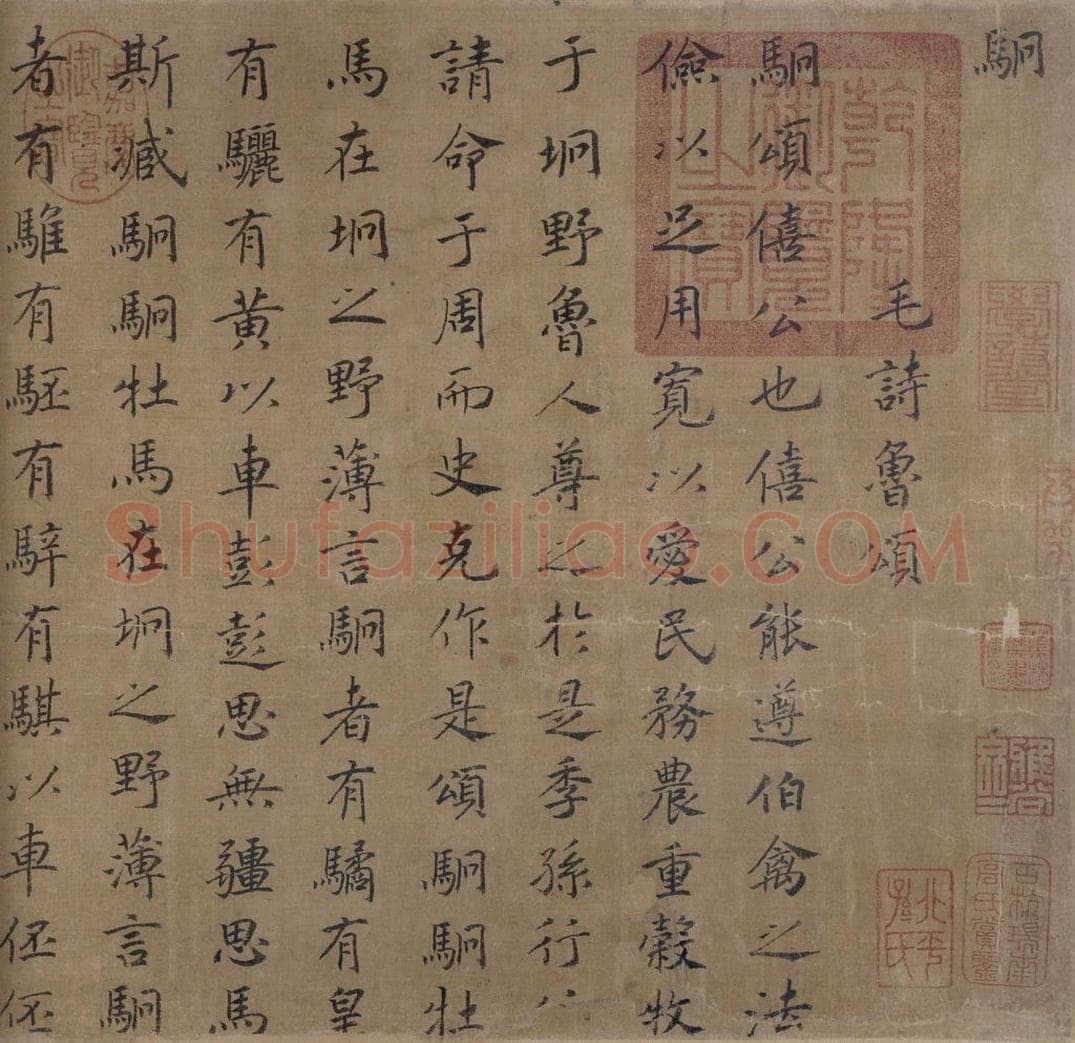 駉
毛詩魯頌
駉頌僖公也僖公能遵伯禽之法
儉以足用寬以愛民務農重穀牧
于坰野魯人尊之於是季孫行父
請命于周而史克作是頌駉駉牡
馬在坰之野薄言駉者有驈有皇
有驪有黃以車彭彭思無疆思馬
斯臧駉駉牡馬在坰之野薄言駉
者有騅有駓有騂有騏以車伾伾
乾隆御覽之寶
嘉慶御覽之寶
北平孫氏
Shufaziliao.COM